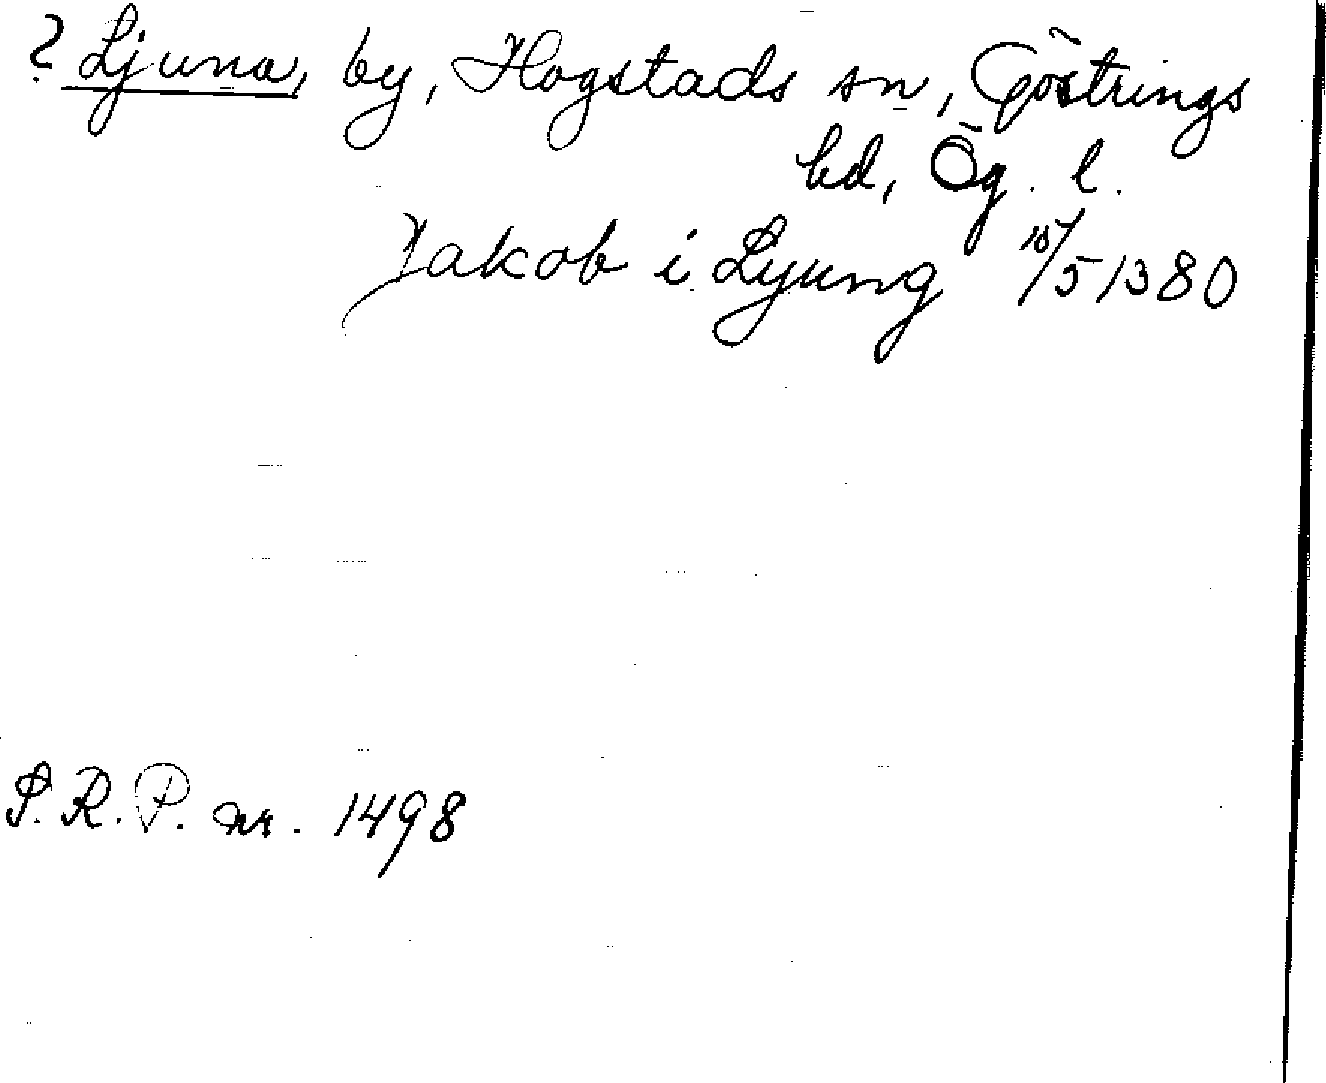 ? Ljuna, by, Hogstads sn, Göstrings
hd, Ög. l.
Jakob i Lyung 10/5 1380
S. R. P. nr. 1498